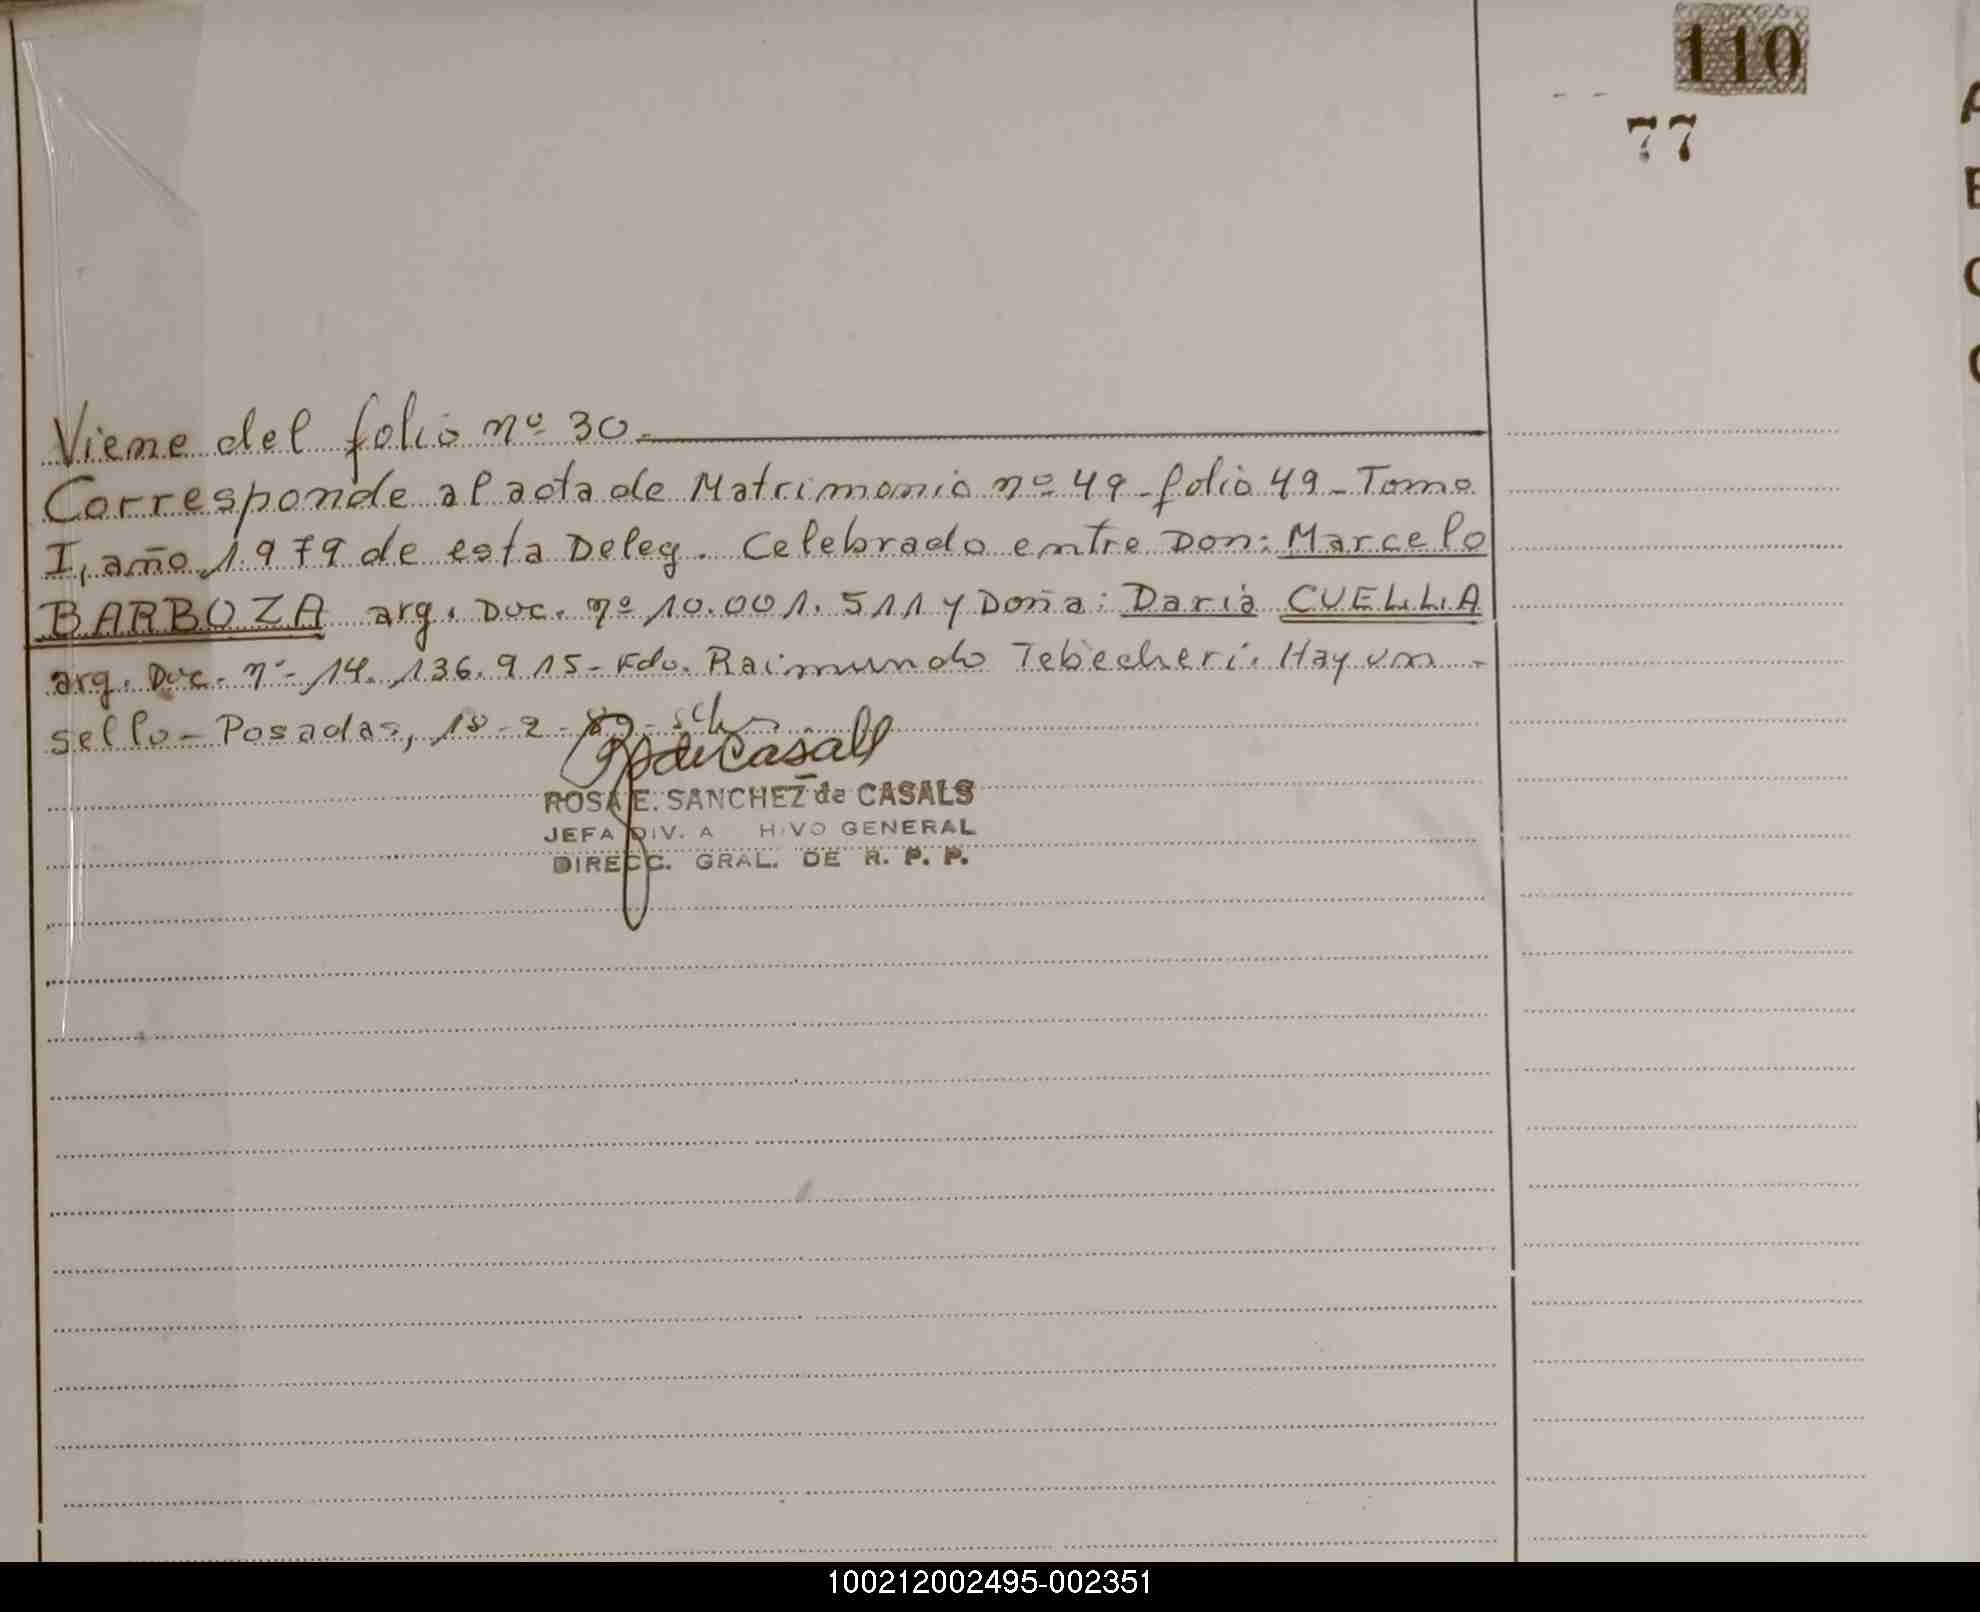 110
77
Viene del folio nº 30.
Corresponde al acta de Matrimonio nº 49 - folio 49 - Tomo
I, año 1.979 de esta Deleg. Celebrado entre Don: Marcelo
BARBOZA arg. Doc. nº 10.001.511 y Doña: Daria CUELLA
arg. Doc. nº 14.136.915 - Fdo. Raimundo Tebecheri. Hay un -
sello - Posadas, 18-2-
ROSA E. SANCHEZ de CASALS
JEFA DIV. A HIVO GENERAL
DIRECC. GRAL. DE R. P. P.
100212002495-002351